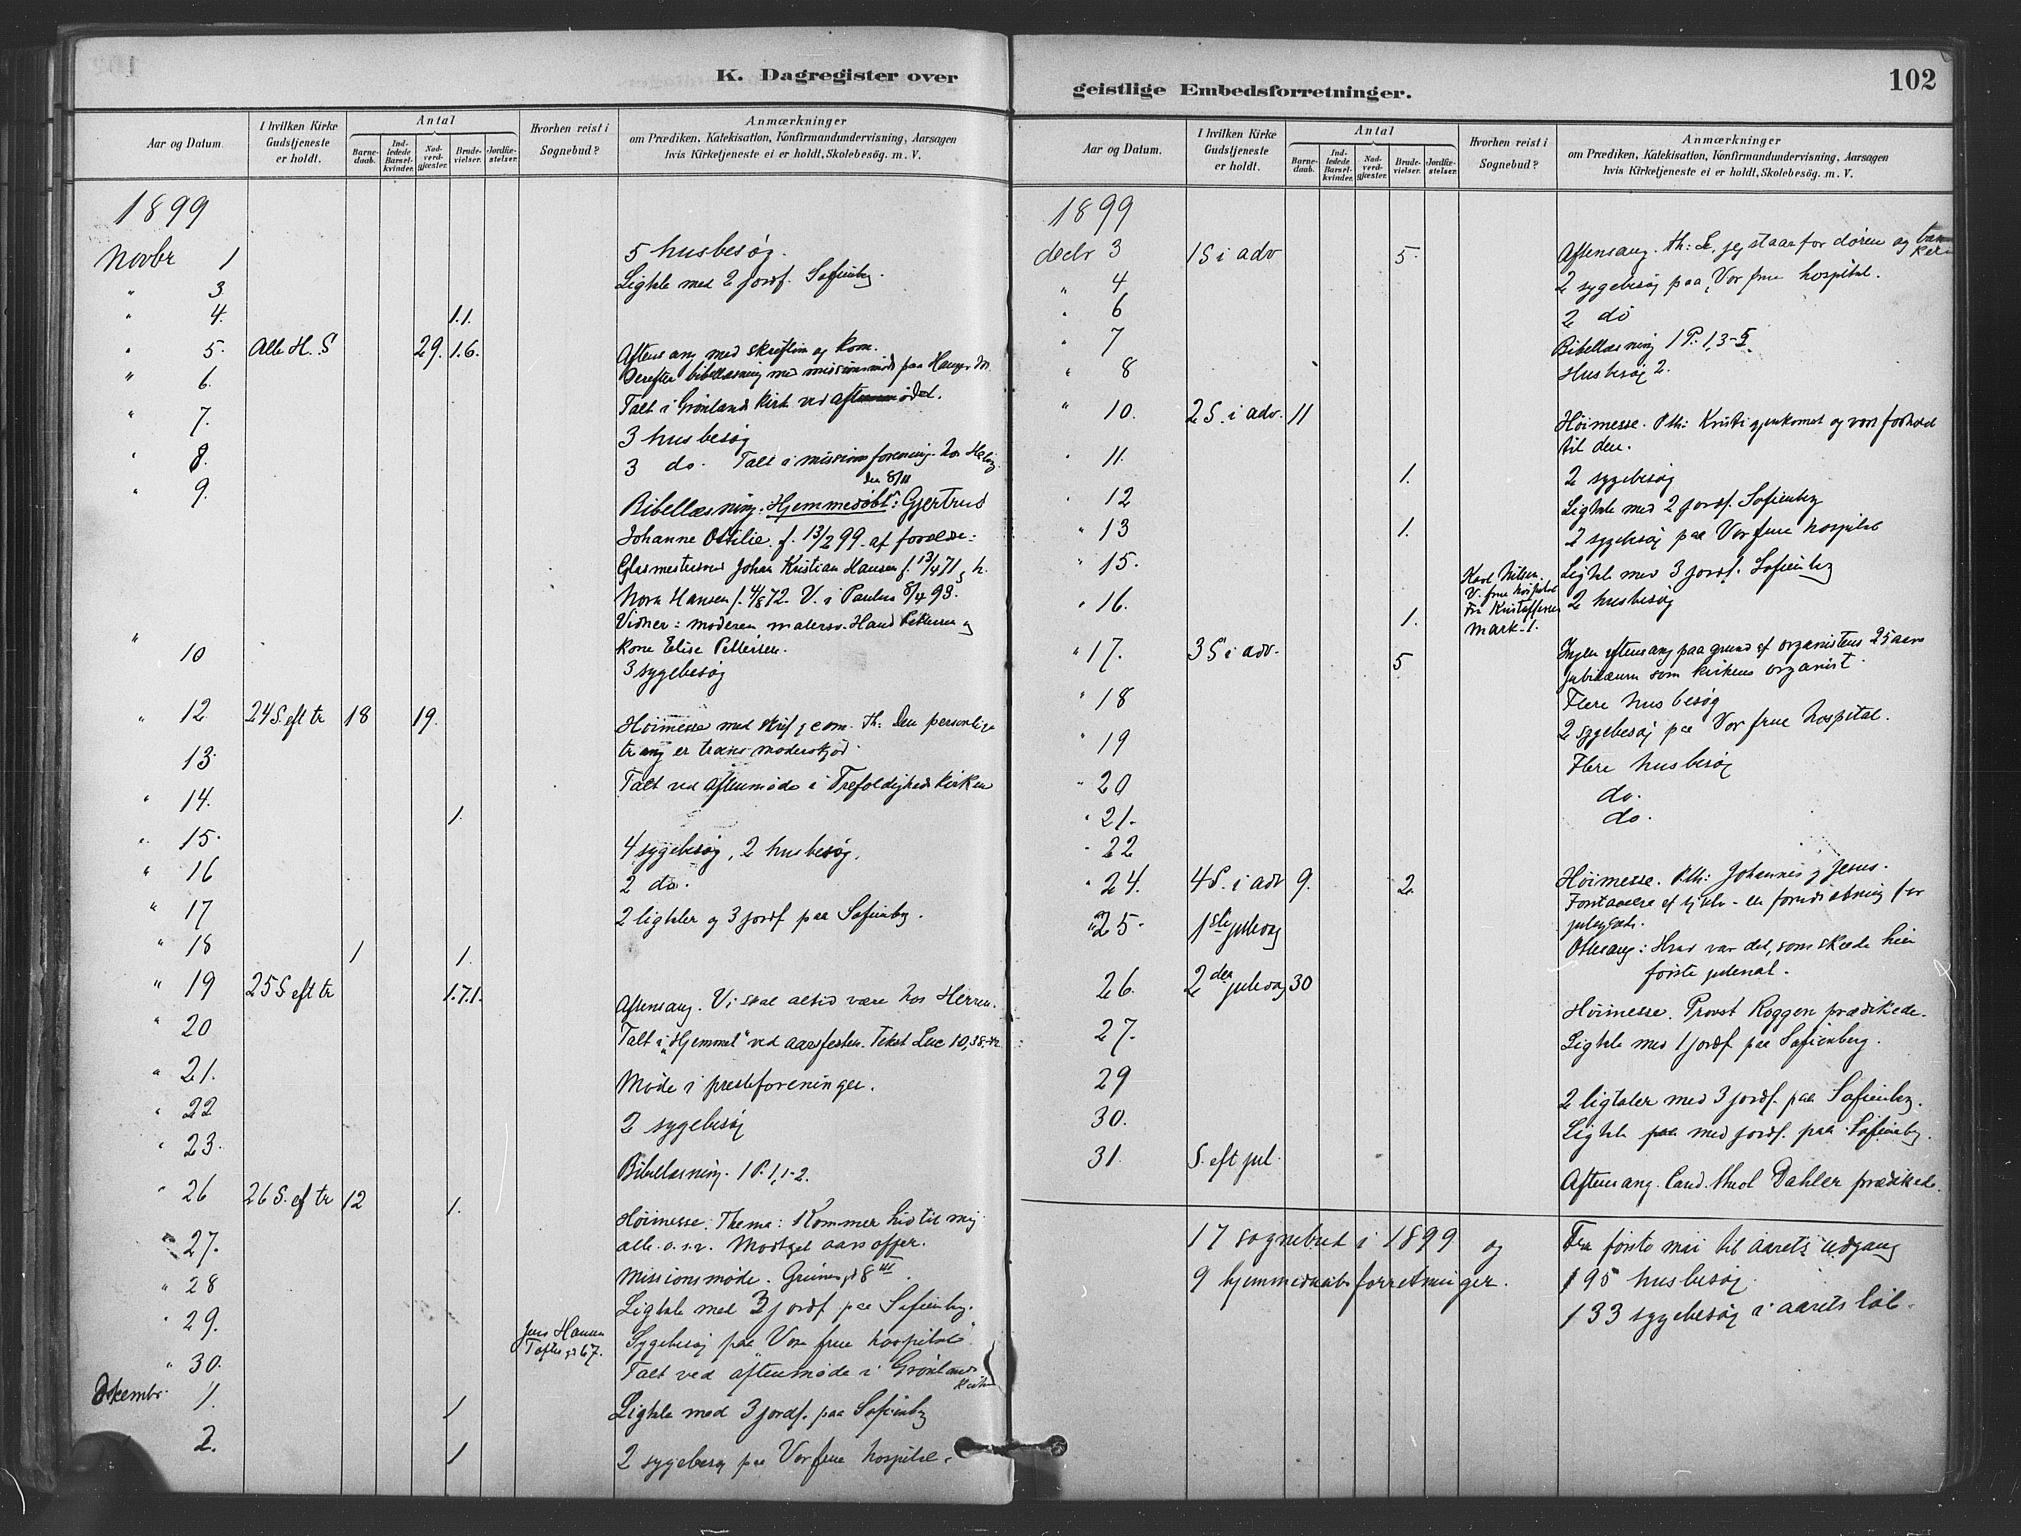 K. Dagregister over
Aar og Datum.
I hvilken Kirke Gudstjeneste er holdt.
Antal
Barne-daab.
Ind-ledede Barsel-kvinder.
Nad-verd-gjæster.
Brude-vielser.
Jordfæ-stelser.
Hvorhen reist i Sognebud?
Anmærkninger
om Prædiken, Katekisation, Konfirmandundervisning, Aarsagen
hvis Kirketjeneste ei er holdt, Skolebesög. m. V.
1899
Novbr 1 5 husbesøg.
" 3 Ligtale med 2 jordf. Sofienbg.
" 4. 1.1.
" 5. Alle H. S 29. 1.6. Aftensang med skriftm og kom.
Derefter bibellæsning med missionsmøde paa
" 6. Talt i Grønlands kirk ved aftenmødet.
" 7. 3 husbesøg
" 8. 3 do. Talt i missionsforening. hos
den 8/11
" 9. Bibellæsning. Hjemmedøbt: Gjertrud
Johanne Otilie. f. 13/2 99. af forældre:
Glasmestersvend Johan Kristian Hansen f. 13/4 71 og h.
Nora Hansen f. 4/8 72. V. i Paulus 8/4 93.
Vidner: moderen malersv. Hans Pettersen og
kone Elise Pettersen.
" 10 3 sygebesøg
" 12 24 S. eft tr 18 19. Høimesse med skrif og com. Th: Den personlige
trang er troens moderskjød.
13. Talt ved aftenmøde i Trefoldigheds kirken
" 14. 1.
" 15. 4 sygebesøg, 2 husbesøg.
" 16 2 do.
" 17 2 ligtaler og 3 jordf paa Sofienbg.
" 18 1 1.
" 19 25 S eft tr 1.7.1. Aftensang. Vi skal altid være hos Herren.
" 20 Talt i "Hjemmet" ved aarsfesten. Tekst Luc 10,38-42
" 21. Møde i presteforeningen.
" 22 2 sygebesøg
" 23. Bibellæsning. 1 P. 1,1-2.
" 26 26 S. ef tr 12 1. Høimesse. Thema: Kommer hid til mig
alle o.s.v. Modtget aarsoffer.
" 27. Missionsmøde. Grünersgd 8 III.
" 28 Ligtale med 3 jordf paa Sofienbg.
" 29. Jens Hansen Toftesgd 67. Sygebesøg paa Vor frue hospital.
" 30. Talt ved aftenmøde i Grønlands
kirke
Dekembr. 1. 1 Ligtale med 3 jordf. paa Sofienbg
2. 1 2 sygebesøg paa Vor frue hospital.
geistlige Embedsforretninger.
102
Aar og Datum.
I hvilken Kirke Gudstjeneste er holdt.
Antal
Barne-daab.
Ind-ledede Barsel-kvinder.
Nad-verd-gjæster.
Brude-vielser.
Jordfæ-stelser.
Hvorhen reist i Sognebud?
Anmærkninger
om Prædiken, Katekisation, Konfirmandundervisning, Aarsagen
hvis Kirketjeneste ei er holdt, Skolebesög. m. V.
1899
decbr 3 1 S i adv 5. Aftensang. Th: Se, jeg staar for døren og banker
" 4 2 sygebesøg paa Vor frue hospital.
" 6 2 do
" 7 Bibellæsning 1 P. 1,3-5.
" 8 Husbesøg 2.
" 10. 2 S. i adv. 11 Høimesse. Pth: Kristi gjenkomst og vort forhold
til den.
" 11. 1. 2 sygebesøg
" 12 Ligtale med 2 jordf. Sofienbg
" 13 1. 2 sygebesøg paa Vor frue hospital
" 15. Ligtale med 3 jordf. Sofienbg
" 16. 1. Karl Nilsen.
V. frue hospital
Fru Kristoffersen
Mark. 1. 2 husbesøg
" 17. 3 S i adv. 5 Ingen aftensang paa grund af organistens 25 aars
jubilæum som kirkens organist.
" 18 Flere husbesøg
2 sygebesøg paa Vor frue hospital.
" 19 Flere husbesøg
" 20 do.
" 21. do.
" 22
" 24. 4 S. i adv 9. 2. Høimesse. Pth: Johannes og Jesus.
" 25. 1ste juledag Ottesang: Hvad var det, som skede hin
første julenat.
26. 2den juledag 30 Høimesse. Provst Roggen prædikede.
27. Ligtale med 1 jordf paa Sofienberg.
29 2 ligtaler med 3 jordf. paa Sofienbg.
30. Ligtale paa med jordf. paa Sofienbg.
31. S. eft jul. Aftensang. Cand. theol Dahler prædikede.
17 sognebud i 1899 og
9 hjemmedaabsforretninger.
Fra første mai til aarets udgang
195 husbesøg.
133 sygebesøg i aarets løb.